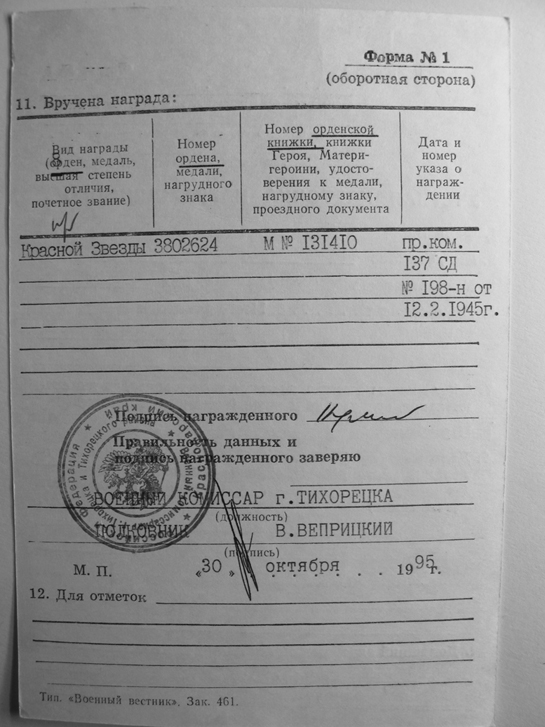 Форма № 1
(оборотная сторона)
11. Вручена награда:
Вид награды
(орден, медаль,
высшая степень
отличия,
почетное звание)
Номер
ордена,
медали,
нагрудного
знака
Номер орденской
книжки, книжки
Героя, Матери-
героини, удосто-
верения к медали,
нагрудному знаку,
проездного документа
Дата и
номер
указа о
награж-
дении
Красной Звезды 3802624 М № 131410 пр.ком.
137 СД
№ 198-н от
12.2.1945г.
Подпись награжденного
Правильность данных и
подпись награжденного заверяю
ВОЕННЫЙ КОМИССАР г.ТИХОРЕЦКА
(должность)
ПОЛКОВНИК В.ВЕПРИЦКИЙ
(подпись)
М. П. «30» октября 1995г.
12. Для отметок
Тип. «Военный вестник». Зак. 461.